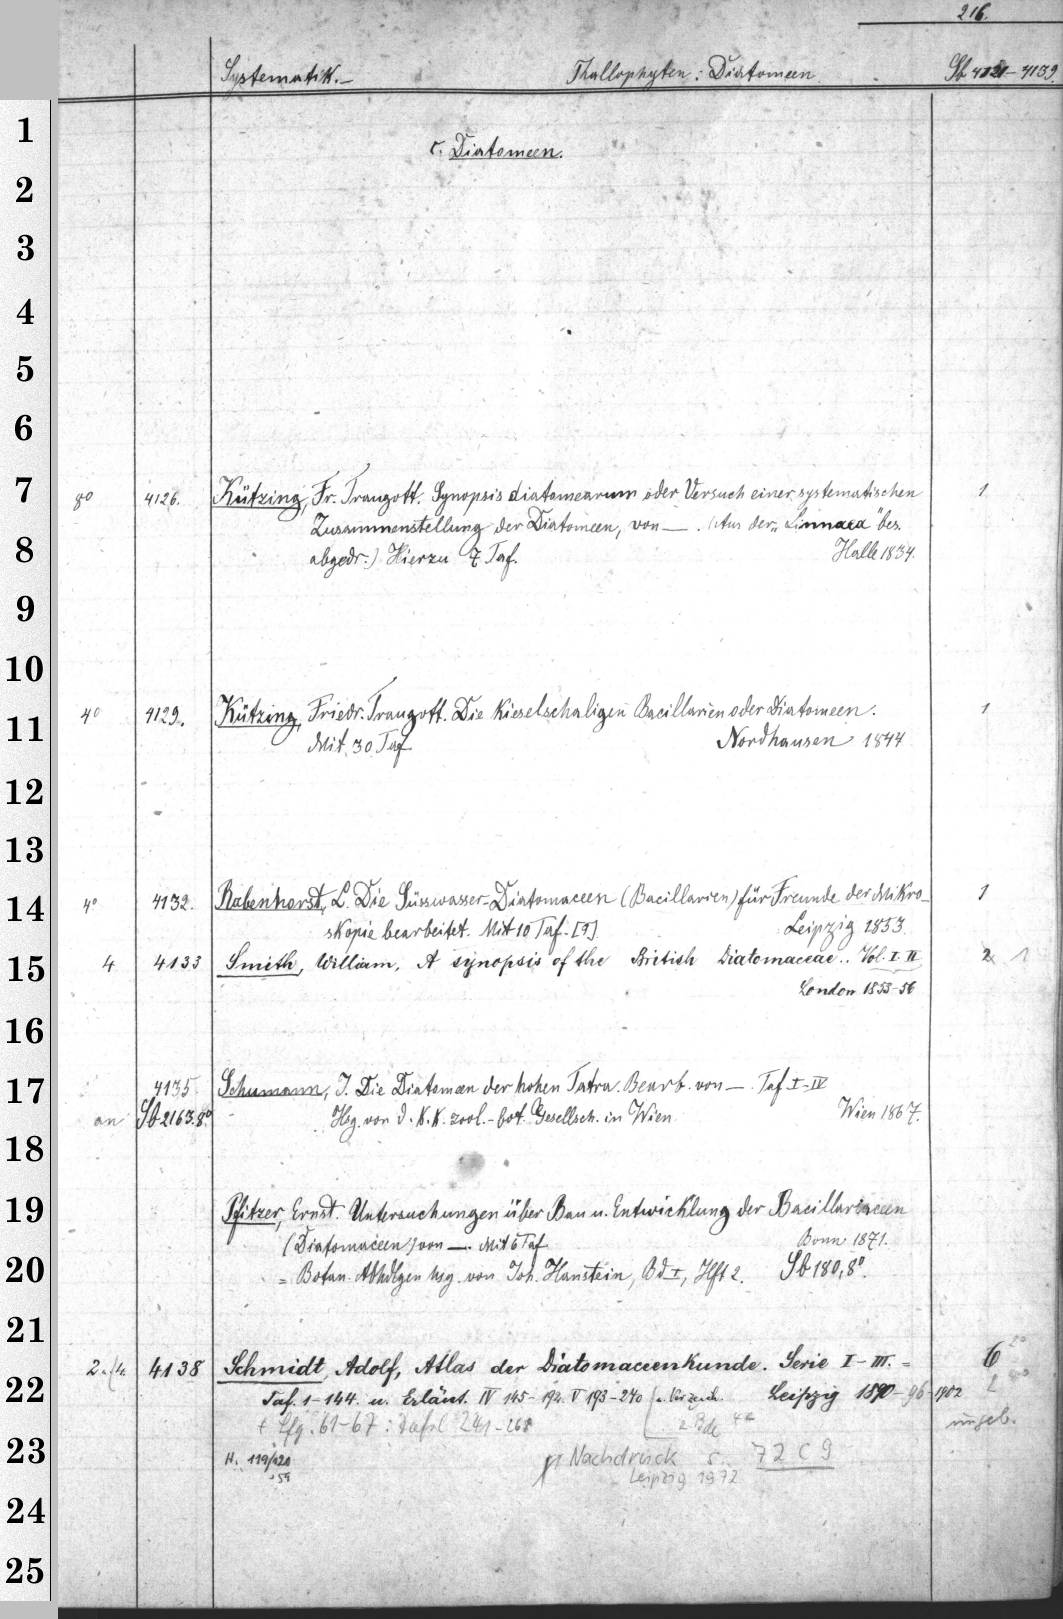 216.
Systematik.— Thallophyten: Diatomeen. Sb 4121–4139.
1
c. Diatomeen.
2
3
4
5
6
7
8° 4126. Kützing, Fr. Traugott. Synopsis diatomearum oder Versuch einer systematischen 1
Zusammenstellung der Diatomeen, von —. (Aus der „Linnaea“ bes.
8
abgedr.) Hierzu 7 Taf. Halle 1834.
9
10
4° 4129. Kützing, Friedr. Traugott. Die Kieselschaligen Bacillarien oder Diatomeen. 1
11
Mit 30 Taf. Nordhausen 1844
12
13
14
4° 4132. Rabenhorst, L. Die Süsswasser-Diatomaceen (Bacillarien) für Freunde der Mikro- 1
skopie bearbeitet. Mit 10 Taf. [9] Leipzig 1853.
15
4 4133 Smith, William, A synopsis of the British Diatomaceae.. Vol. I. II 2 1
London 1853-56
16
17
4135. Schumann, J. Die Diatomeen der hohen Tatra. Bearb. von —. Taf. I–IV
an Sb 2163.8° Hsg. von d. K. K. zool.-bot. Gesellsch. in Wien Wien 1867.
18
19
Pfitzer, Ernst. Untersuchungen über Bau u. Entwicklung der Bacillariaceen
(Diatomaceen) von —. Mit 6 Taf. Bonn 1871.
20
= Botan. Abhdlgen hsg. von Joh. Hanstein, Bd I, Hft 2. Sb 180, 8°.
21
2. 4138 Schmidt, Adolf, Atlas der Diatomaceenkunde. Serie I–III. = 6 2°
22
Taf. 1–144. u. Erläut. IV 145–192. V 193–240 Leipzig 1890–96–1902
+ Lfg. 61–67: Tafel 241–268 2 Bde 4° ungeb.
23
N. 119/1920 Nachdruck s. 72 C 9
Leipzig 1972
24
25